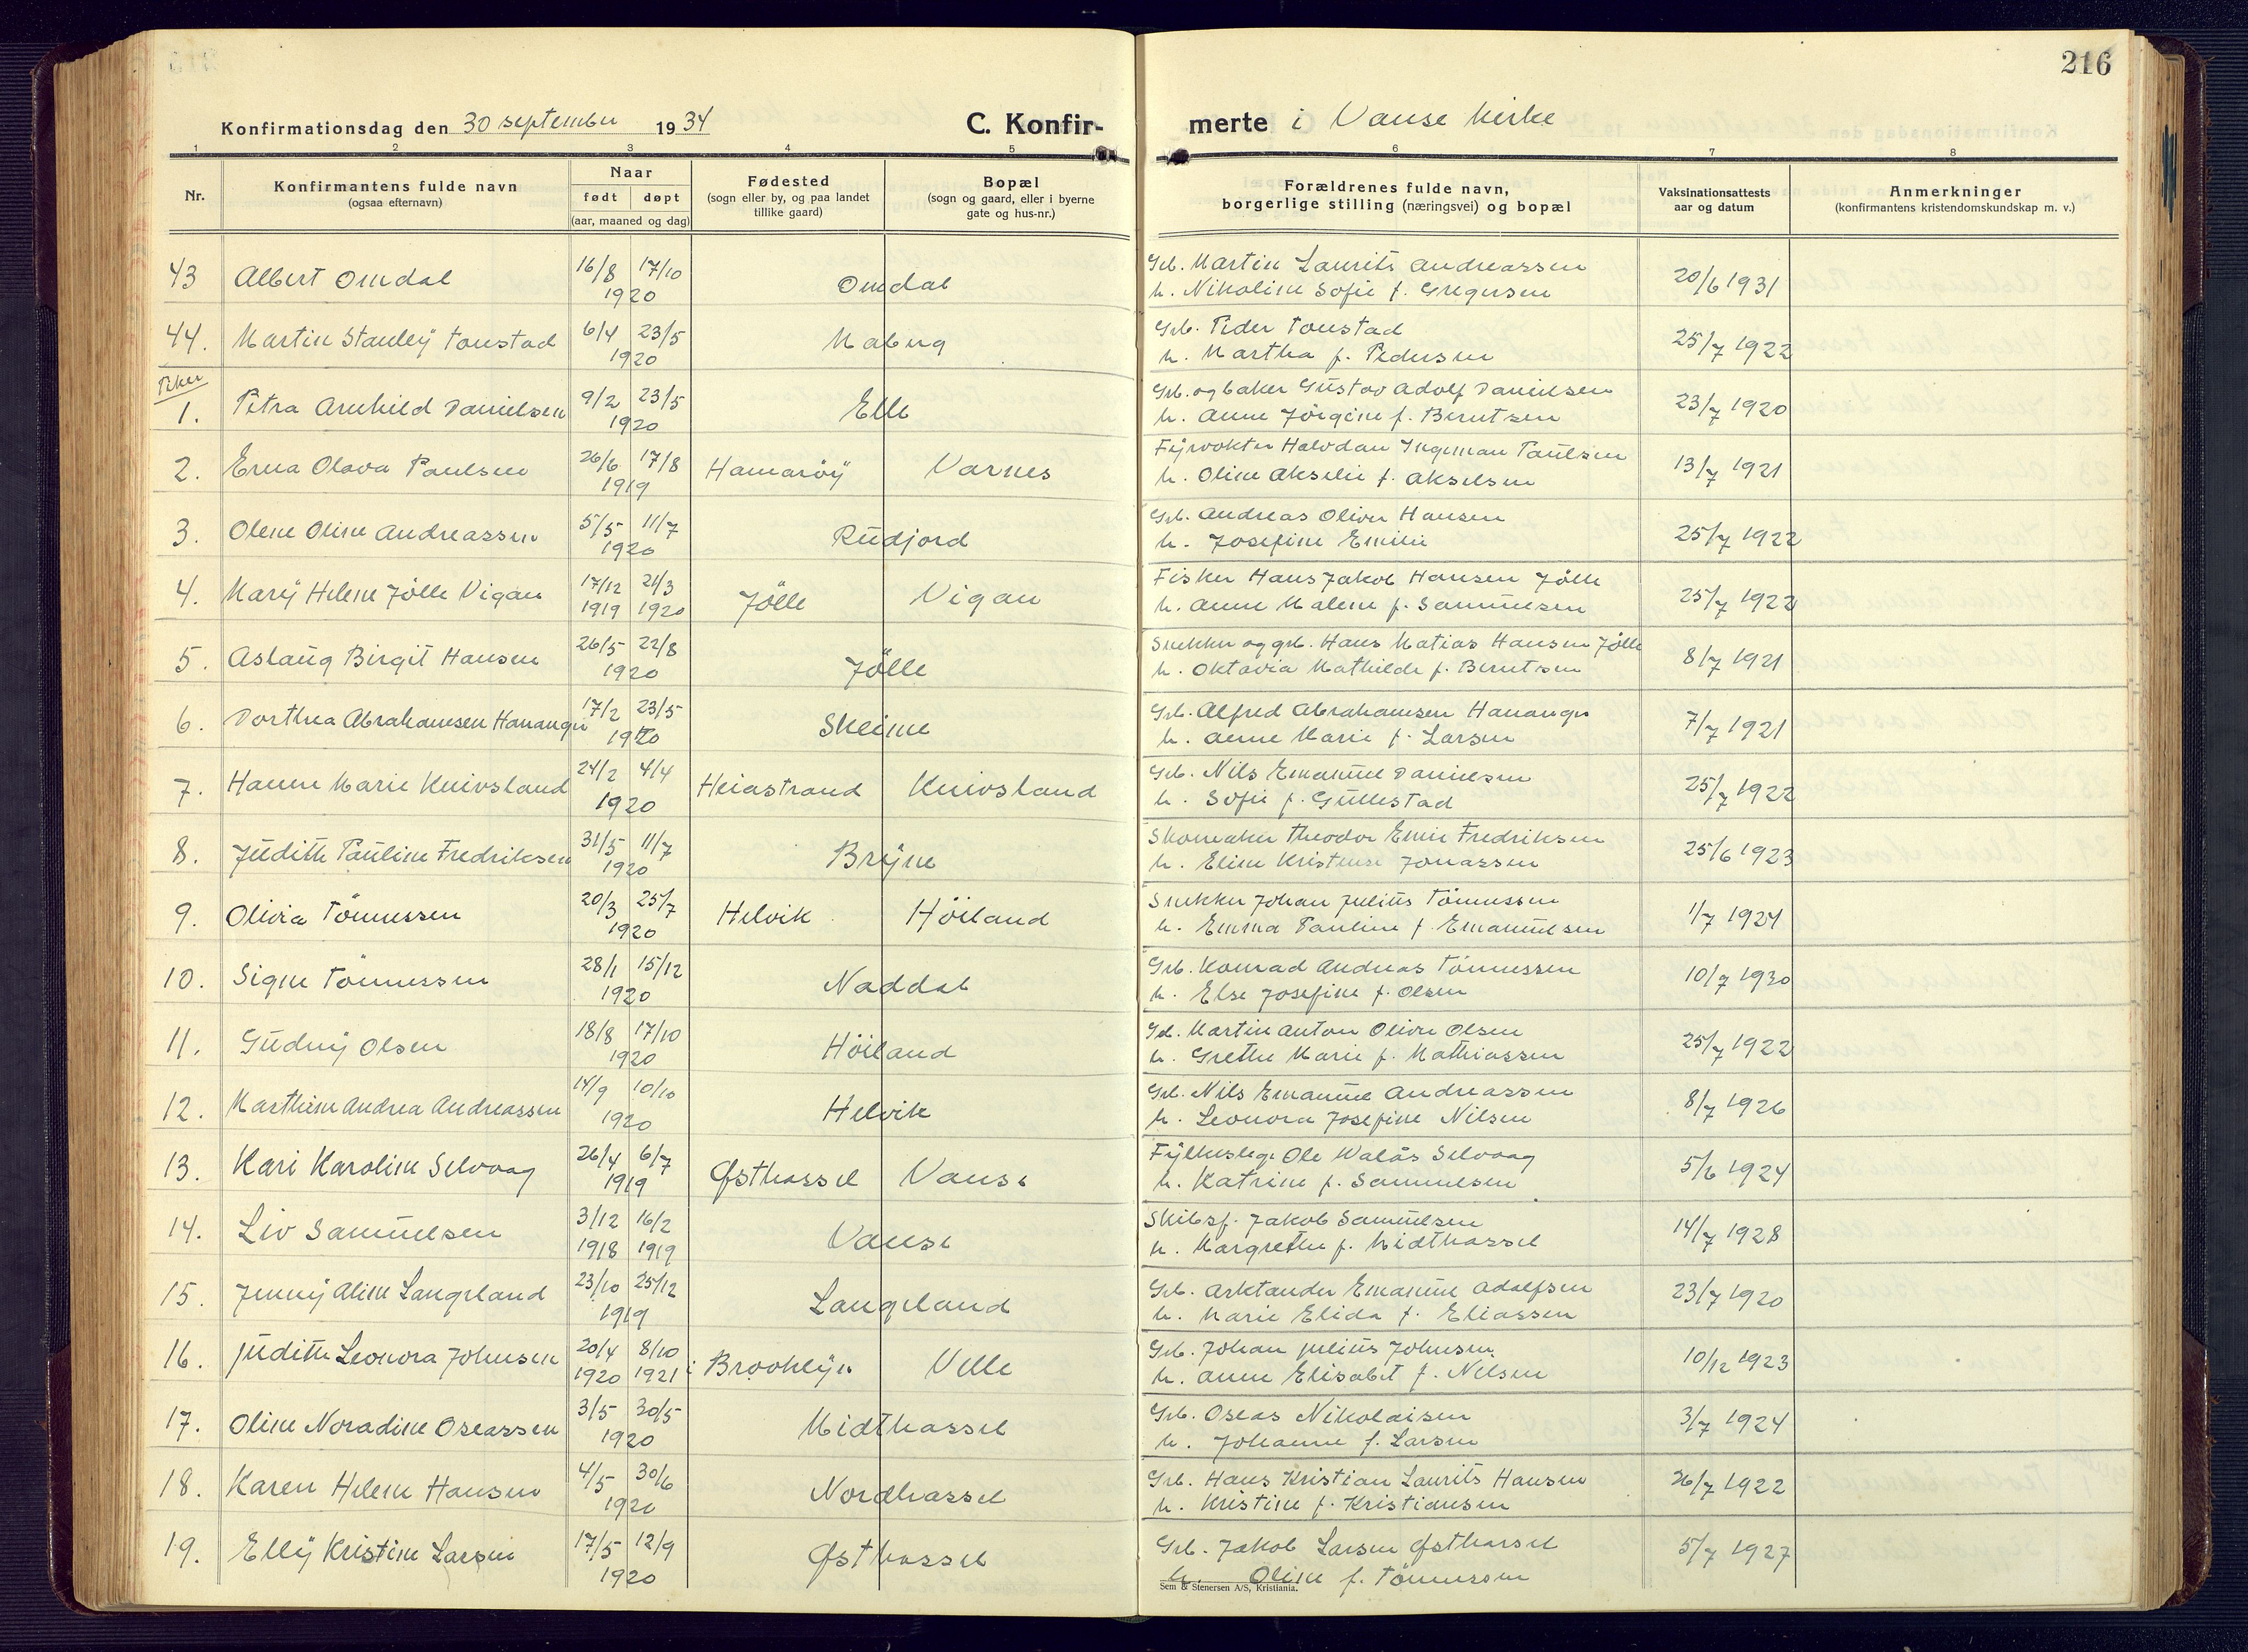 216
Konfirmationsdag den 30 september 1934 C. Konfir- merte i Vanse kirke
1 2 3 4 5 6 7 8
Nr.
Konfirmantens fulde navn
(ogsaa efternavn)
Naar
født døpt
(aar, maaned og dag)
Fødested
(sogn eller by, og paa landet
tillike gaard)
Bopæl
(sogn og gaard, eller i byerne
gate og hus-nr.)
Forældrenes fulde navn,
borgerlige stilling (næringsvei) og bopæl
Vaksinationsattests
aar og datum
Anmerkninger
(konfirmantens kristendomskundskap m. v.)
43 Albert Omdal 16/8 17/10 1920 Omdal Grb. Martin Laurits Andreassen
h. Nikoline Sofie f. Gregersen 20/6 1931
44. Martin Stanley Tonstad 6/4 23/5 1920 Maberg Grb. Peder Tonstad
h. Martha f. Pedersen 25/7 1922
Piker
1. Petra Arnhild Danielsen 9/2 23/5 1920 Elle Grb. og baker Gustav Adolf Danielsen
h. Anne Jörgine f. Berntsen 23/7 1920
2. Erna Olava Paulsen 26/6 17/8 1919 Hamaröy Varnes Fyrvokter Halvdan Ingeman Paulsen
h. Oline Akselie f. Akselsen 13/7 1921
3. Olene Oline Andreassen 5/5 11/7 1920 Rudjord Grb. Andreas Oliver Hansen
h. Josefine Emilie 25/7 1922
4. Mary Helene Jölle Vigan 17/12 1919 21/3 1920 Jölle Vigan Fisker Hans Jakob Hansen Jölle
h. Anne Malene f. Samuelsen 25/7 1922
5. Aslaug Birgit Hansen 26/5 22/8 1920 Jölle Snekker og grb. Hans Matias Hansen Jölle
h. Oktavia Mathilde f. Berntsen 8/7 1921
6. Dorthea Abrahamsen Hananger 17/2 23/5 1920 Skeime Grb. Alfred Abrahamsen Hananger
h. Anne Marie f. Larsen 7/7 1921
7. Hanne Marie Knivsland 24/2 4/4 1920 Heiastrand Knivsland Grb. Nils Emanuel Danielsen
h. Sofie f. Gullestad 25/7 1922
8. Judith Pauline Fredriksen 31/5 11/7 1920 Bryne Skomaker Theodor Emir Fredriksen
h. Eline Kristense Jonassen 25/6 1923
9. Olivia Tönnessen 20/3 25/7 1920 Helvik Höiland Snekker Johan Julius Tönnessen
h. Emma Pauline f. Emanuelsen 1/7 1921
10. Signe Tönnessen 28/1 15/12 1920 Naddal Grb. Konrad Andreas Tönnessen
h. Else Josefine f. Olsen 10/7 1930
11. Gudny Olsen 18/8 17/10 1920 Höiland Grb. Martin Anton Oliver Olsen
h. Grethe Marie f. Mathiassen 25/7 1922
12. Marthine Andrea Andreassen 14/9 10/10 1920 Helvik Grb. Nils Emanuel Andreassen
h. Leonora Josefine Nilsen 8/7 1926
13. Kari Karoline Selvaag 26/4 6/7 1919 Østhassel Vanse Fylkeslege Ole Walås Selvaag
h. Katrine f. Samuelsen 5/6 1924
14. Liv Samuelsen 3/12 1918 16/2 1919 Vanse Skibsf. Jakob Samuelsen
h. Margrethe f. Midthassel 14/7 1928
15. Jenny Aline Langeland 23/10 25/12 1919 Langeland Grb. Arktander Emanuel Adolfsen
h. Marie Elida f. Eliassen 23/7 1920
16. Judith Leonora Johnsen 20/4 1920 8/10 1921 i Brooklyn Velle Grb. Johan Julius Johnsen
h. Anne Elisabet f. Nelsen 10/12 1923
17. Oline Noradine Oseassen 3/5 30/5 1920 Midthassel Grb. Oseas Nikolaisen
h. Johanne f. Larsen 3/7 1924
18. Karen Helene Hansen 4/5 30/6 1920 Nordhassel Grb. Hans Kristian Laurits Hansen
h. Kristine f. Kristiansen 26/7 1922
19. Elly Kristine Larsen 17/5 12/9 1920 Østhassel Grb. Jakob Larsen Østhassel
h. Oline f. Tönnessen 5/7 1927
Sem & Stenersen A/S, Kristiania.